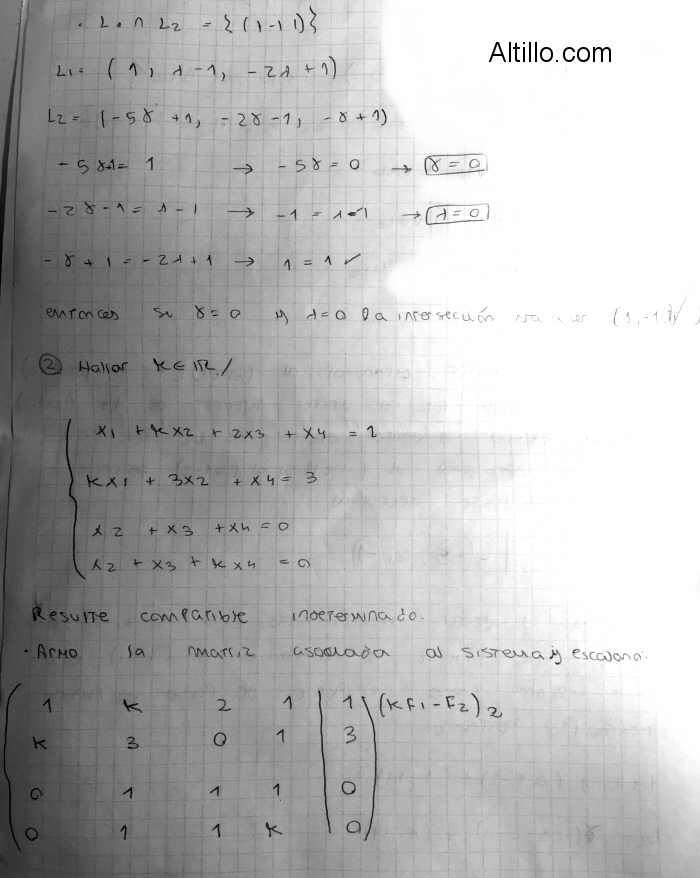 · L1 ∩ L2 = {(1 -1 1)}
Altillo.com
L1 = (1, λ-1, -2λ+1)
L2 = (-5γ+1, -2γ-1, -γ+1)
-5γ+1 = 1 → -5γ = 0 → γ = 0
-2γ-1 = λ-1 → -1 = λ-1 → λ = 0
-γ+1 = -2λ+1 → 1 = 1 ✓
entonces si γ=0 y λ=0 la intersección va a ser (1,-1,1)
② Hallar K∈ℝ/
x1 + Kx2 + 2x3 + x4 = 1
Kx1 + 3x2 + x4 = 3
x2 + x3 + x4 = 0
x2 + x3 + Kx4 = 0
Resulte compatible indeterminado.
· Armo la matriz asociada al sistema y escalono.
1 K 2 1 | 1 (KF1-F2)2
K 3 0 1 | 3
0 1 1 1 | 0
0 1 1 K | 0